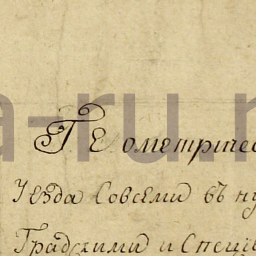 a-ru.n
Геометричес
Уезда Совсеми въ ну
Градскими и Специ